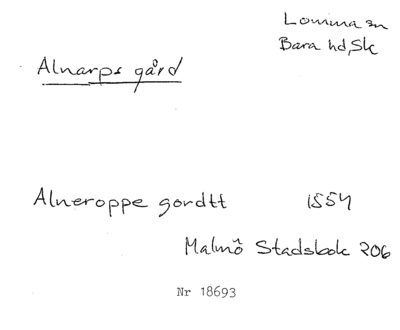 Lomma sn
Bara hd, Sk
Alnarps gård
Alneroppe gordtt 1554
Malmö Stadsbok 206
Nr 18693